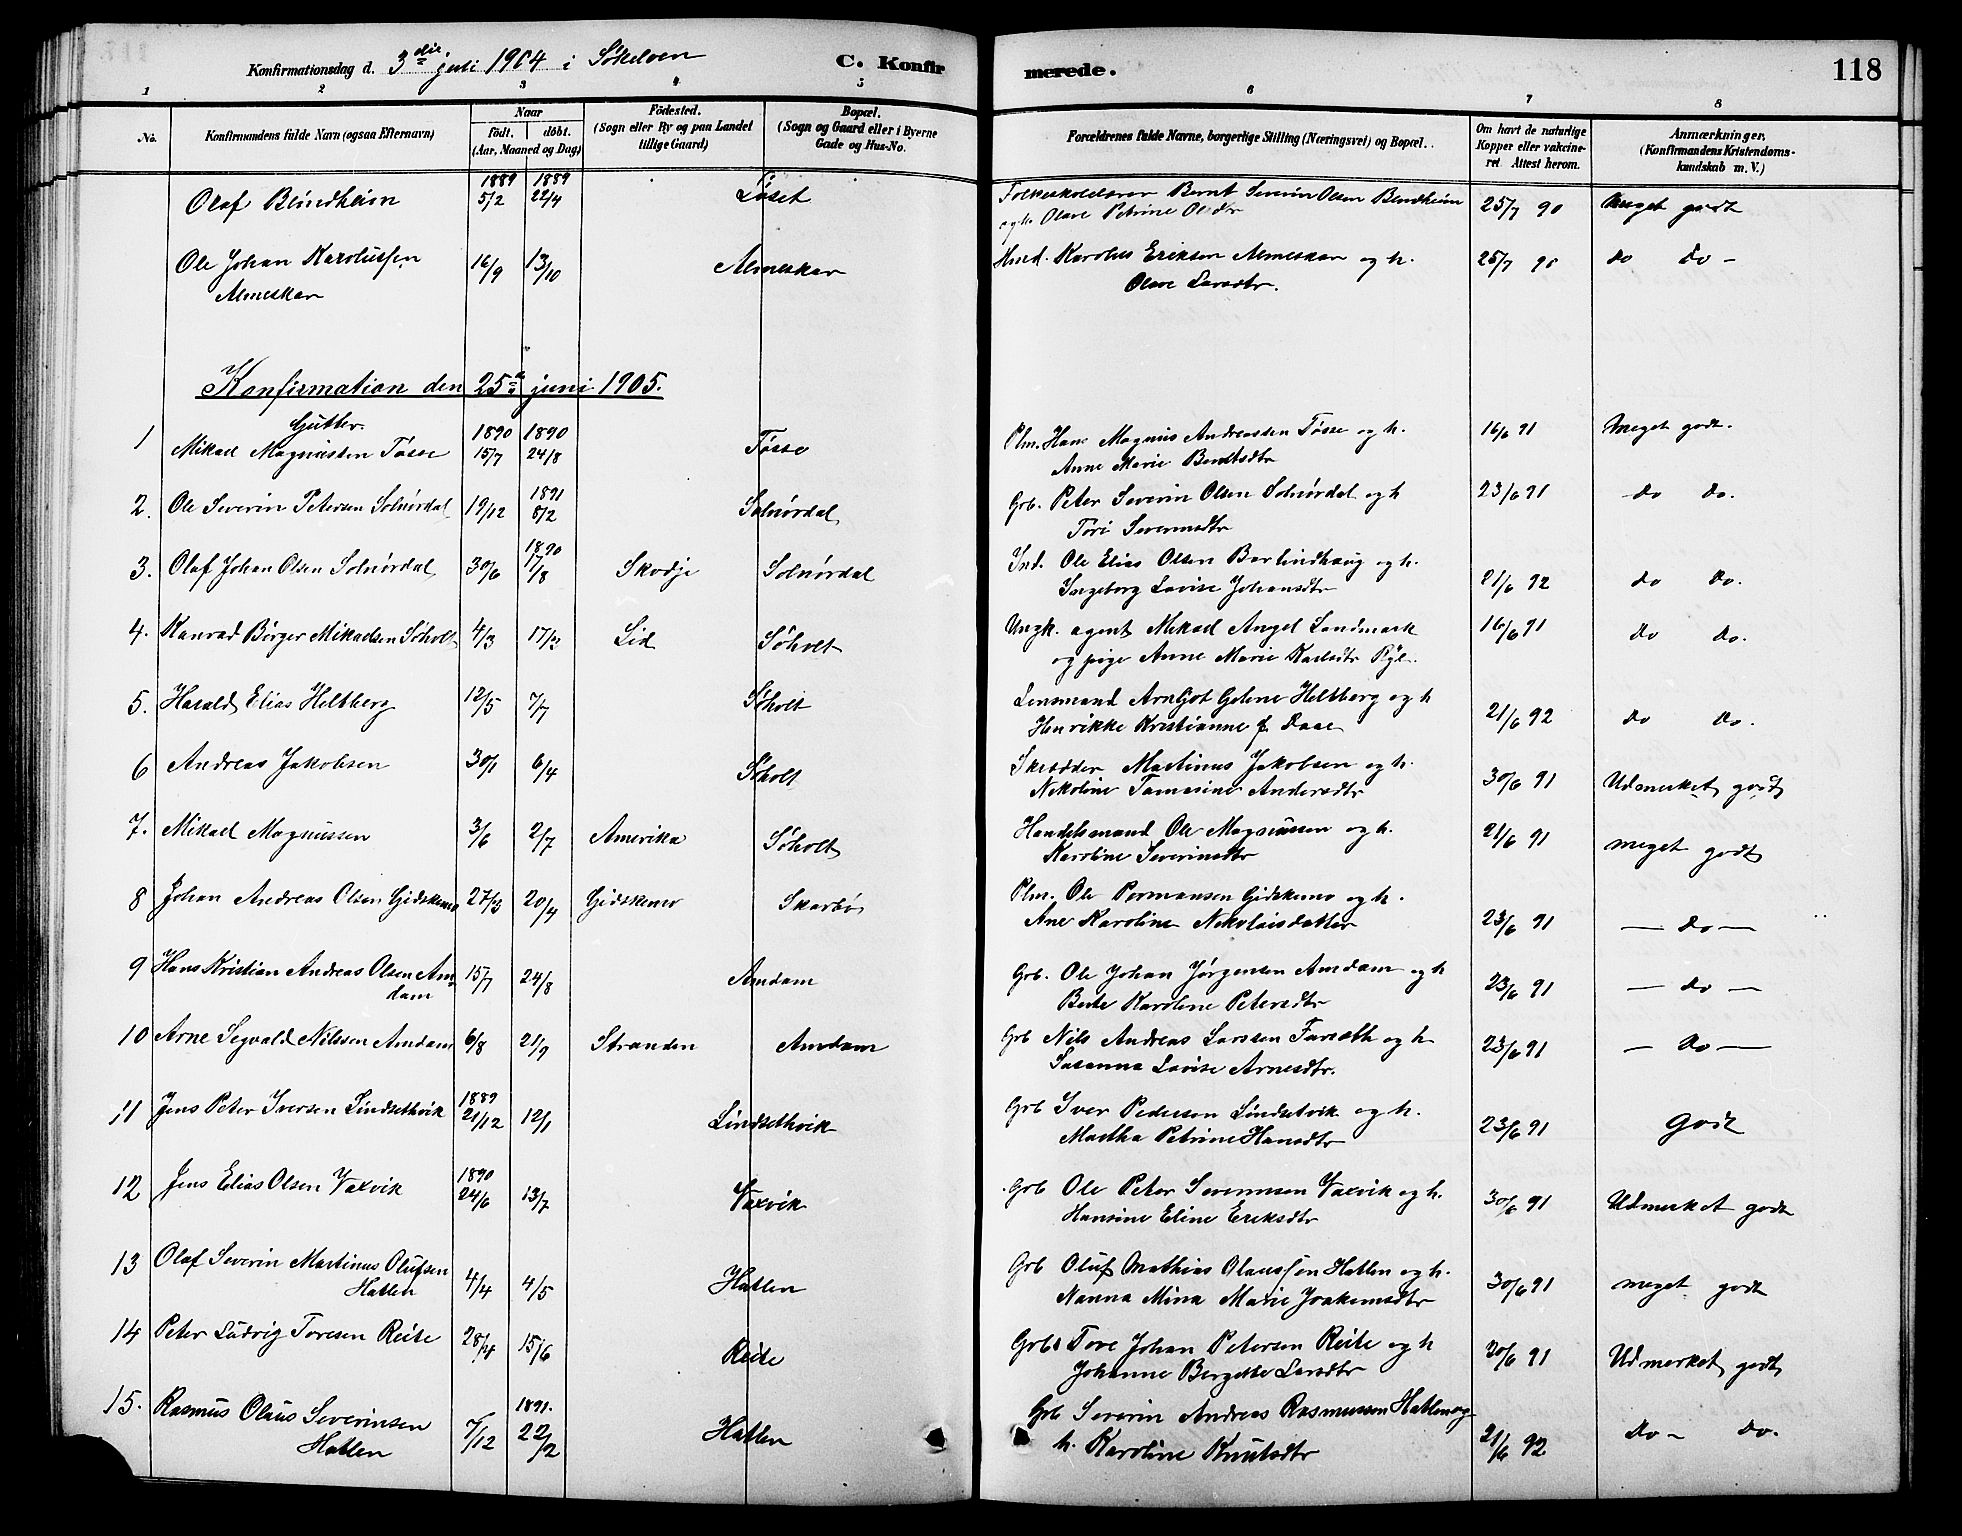 Konfirmationsdag d. 3die juli 1904 i Søkelven C. Konfir
merede. 118
1 2 3 4 5 6 7 8
No. Konfirmandens fulde Navn (ogsaa Efternavn)
Naar
født. døbt.
(Aar, Maaned og Dag)
Födested.
(Sogn eller By og paa Landet
tillige Gaard)
Bopæl.
(Sogn og Gaard eller i Byerne
Gade og Hus-No.
Forældrenes fulde Navne, borgerlige Stilling (Næringsvei) og Bopæl.
Om havt de naturlige
Kopper eller vakcine-
ret Attest herom.
Anmærkninger.
(Konfirmandens Kristendoms-
kundskab m. V.)
Olaf Blindheim 1889 5/2 1889 22/4 Løset Folkeskolelærer Bernt Severin Olsen Blindheim 25/7 90 Meget godt
og h. Olave Petrine Olsdtr
Ole Johan Karolussen 16/9 13/10 Almeskar Husd. Karolus Eriksen Almeskar og h. 25/7 90 do do -
Almeskar Olave Larsdtr.
Konfirmation den 25de juni 1905.
Gutter.
1 Mikael Magnussen Tøsse 1890 15/7 1890 24/8 Tøsse Plm. Hans Magnus Andreassen Tøsse og h. 16/6 91 Meget godt.
Anne Marie Berntsdtr
2. Ole Severin Petersen Solnørdal 19/12 1891 8/2 Solnørdal Grb. Peter Severin Olsen Solnørdal og h 23/6 91 do do.
Tori Severinsdtr
3. Olaf Johan Olsen Solnørdal 30/6 1890 17/8 Skodje Solnørdal Ind. Ole Elias Olsen Barlindhaug og h.
Ingeborg Lovise Johansdtr 21/6 92 do do.
4. Konrad Børger Mikaelsen Søholt 4/3 17/3 Lid Søholt Ungk. agent Mikael Angel Landmark 16/6 91 do do.
og pige Anne Marie Karlsdtr
5. Harald Elias Heltberg 12/5 7/7 Søholt Lensmand Arnljot Gelene Heltberg og h
Henrikke Kristianne f. Daae 21/6 92 do do.
6 Andreas Jakobsen 30/1 6/4 Søholt Skrædder Martinus Jakobsen og h. 30/6 91 Udmerket godt
Nikoline Tomasine Andersdtr
7. Mikael Magnussen 3/6 2/7 Amerika Søholt Handelsmand Ole Magnussen og h. 21/6 91 meget godt
Karoline Severinsdtr
8 Johan Andreas Olsen Gjidskemo 27/3 20/4 Gidskemo Skarbø Plm. Ole Permansen Gidskemo og h.
Ane Karoline Nikolaisdatter 23/6 91 - do -
9 Hans Kristian Andreas Olsen Am- 15/7 24/8 Amdam Grb. Ole Johan Jørgensen Amdam og h 23/6 91 - do -
dam Berte Karoline Petersdtr
10 Arne Segvald Nilssen Amdam 6/8 21/9 Stranden Amdam Grb Nils Andreas Larssen Farsæth og h 23/6 91 - do -
Susanna Lovise Arnesdtr.
11 Jens Peter Iversen Lindsethvik 1889 21/12 12/1 Lindsethvik Grb Iver Pedersen Lindsetvik og h. 23/6 91 godt
Martha Petrine Hansdtr
12 Jens Elias Olsen Vaxvik 1890 24/6 13/7 Vaxvik Grb Ole Peter Severinsen Vaxvik og h. 30/6 91 Udmerket godt
Hansine Eline Eriksdtr
13 Olaf Severin Martinus Olufsen 4/4 4/5 Hatlen Grb Oluf Mathias Olaussen Hatlen og h. 30/6 91 meget godt
Hatlen Nanna Mina Marie Joakimsdtr
14 Peter Ludvig Toresen Reite 28/4 15/6 Reite Grbs Tore Johan Petersen Reite og h 30/6 91 Udmerket godt
Johanne Bergitte Larsdtr
15. Rasmus Olaus Severinsen 7/12 1891. 22/2 Hatlen Grb Severin Andreas Rasmussen Hatlen og
Hatlen h. Karoline Knutsdtr 21/6 92 do - do.